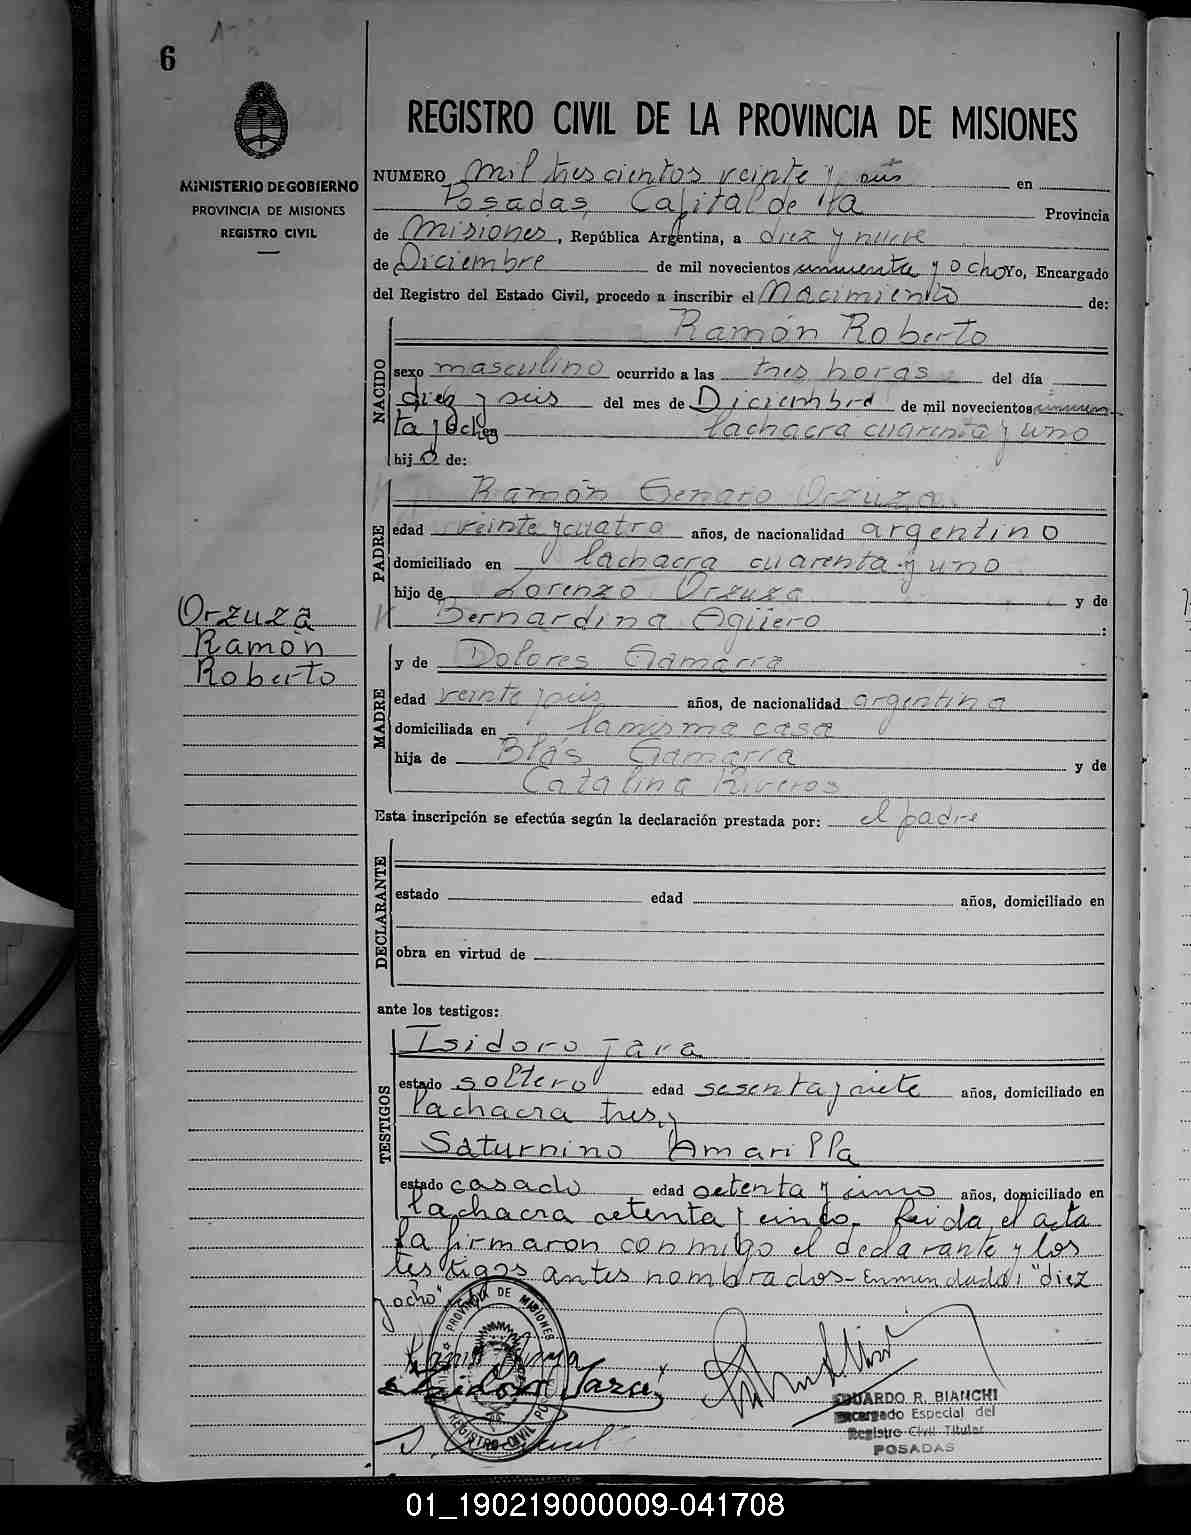 6
MINISTERIO DE GOBIERNO
PROVINCIA DE MISIONES
REGISTRO CIVIL
REGISTRO CIVIL DE LA PROVINCIA DE MISIONES
NUMERO mil trescientos veinte y seis en
Posadas, Capital de la Provincia
de Misiones, República Argentina, a diez y nueve
de Diciembre de mil novecientos cincuenta y ocho Yo, Encargado
del Registro del Estado Civil, procedo a inscribir el Nacimiento de:
NACIDO
Ramón Roberto
sexo masculino ocurrido a las tres horas del día
diez y seis del mes de Diciembre de mil novecientos cincuen
ta y ocho lachacra cuarenta y uno
hijo de:
PADRE
Ramón Genaro Orzuza
edad veinte y cuatro años, de nacionalidad argentino
domiciliado en lachacra cuarenta y uno
hijo de Lorenzo Orzuza y de
Bernardina Agüero :
Orzuza
Ramón
Roberto
MADRE
y de Dolores Gamarra
edad veinte y seis años, de nacionalidad argentina
domiciliada en lamisma casa
hija de Blás Gamarra y de
Catalina Riveros
Esta inscripción se efectúa según la declaración prestada por: el padre
DECLARANTE
estado edad años, domiciliado en
obra en virtud de
ante los testigos:
TESTIGOS
Isidoro Jara
estado soltero edad sesenta y siete años, domiciliado en
lachacra tres, y
Saturnino Amarilla
estado casado edad setenta y cinco años, domiciliado en
lachacra setenta y cinco. Leida el acta
la firmaron conmigo el declarante y los
testigos antes nombrados - Enmendado: "diez
y ocho"
PROVINCIA DE MISIONES
REGISTRO CIVIL
Isidoro Jara
EDUARDO R. BIANCHI
Encargado Especial del
Registro Civil Titular
POSADAS
01_190219000009-041708